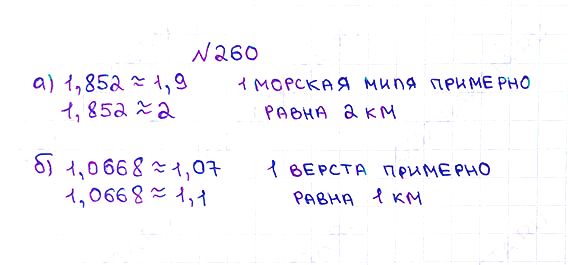 №260
а) 1,852 ≈ 1,9 1 МОРСКАЯ МИЛЯ ПРИМЕРНО
1,852 ≈ 2 РАВНА 2 КМ
б) 1,0668 ≈ 1,07 1 ВЕРСТА ПРИМЕРНО
1,0668 ≈ 1,1 РАВНА 1 КМ